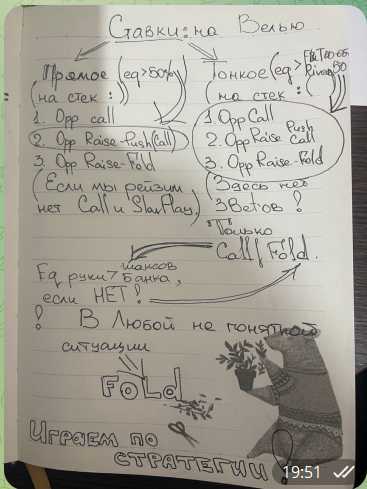 Ставки: на Велью.
Прямое (eq>50%)
(на стек:)
1. Opp call
2. Opp Raise-Push(Call)
3. Opp Raise-Fold
(Если мы рейзим
нет Call и SlowPlay)
Тонкое (eq>
River 50
(на стек:)
1. Opp Call
2. Opp Raise Push Call
3. Opp Raise-Fold
(Здесь нет
3Bet'ов!
Только
Call/Fold.
Eq руки > шансов Банка,
если НЕТ!
! В Любой не понятной
ситуации
FOLD
Играем по
стратегии!
19:51